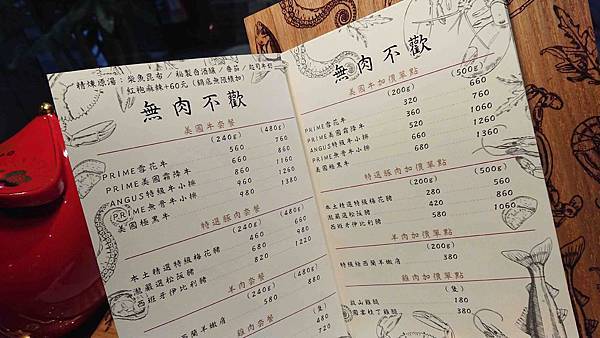 精煉原湯：柴魚昆布／
番茄／起司牛奶
紅袍麻辣+60元（鍋底無限續加）
無肉不歡
美國牛套餐
(240g) (480g)
PRIME雪花牛 560 760
PRIME美國霜降牛 660 860
ANGUS特級牛小排 860 1160
PRIME無骨牛小排 960 1260
美國極黑牛 980 1380
特選豚肉套餐
(240g) (480g)
本土精選特級梅花豬 460 660
嚴選松阪豬 680 980
西班牙伊比利豬 820 1220
羊肉套餐
(240g) (480g)
西蘭羊嫩肩 580 880
雞肉套餐
(隻)
480
720
無肉不歡
美國牛肉加價單點
(200g) (500g)
PRIME雪花牛 320 660
PRIME美國霜降牛 360 760
ANGUS特級牛小排 520 1060
PRIME無骨牛小排 660 1260
美國極黑牛 680 1360
特選豚肉加價單點
(200g) (500g)
本土精選特級梅花豬 280 560
嚴選松阪豬 420 860
西班牙伊比利豬 580 1060
羊肉加價單點
(200g)
特級紐西蘭羊嫩肩 380
雞肉加價單點
(隻)
鼓山雞腿 180
桂丁雞腿 380